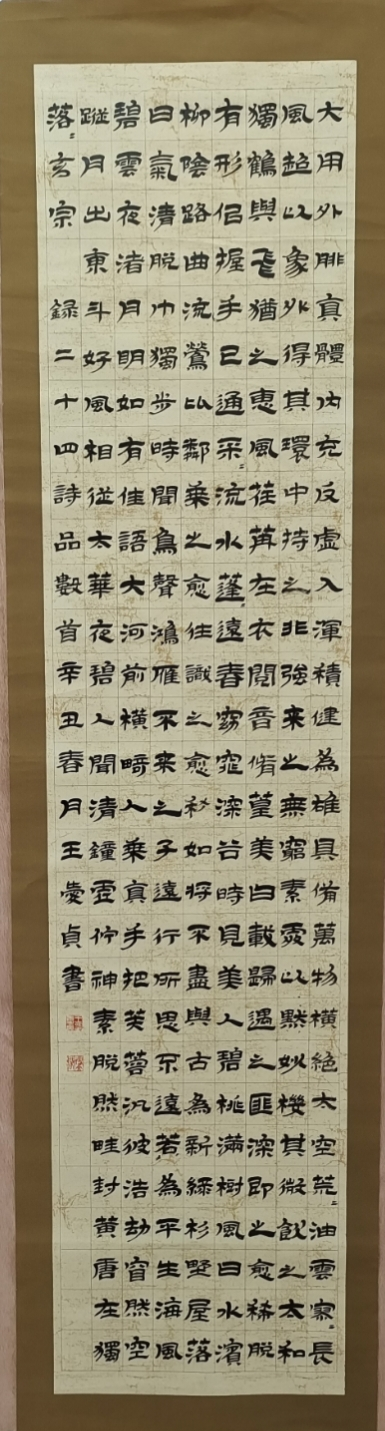 大用外腓真體內充反虛入渾積健為雄具備萬物橫絕太空荒〻油雲寥〻長
風超以象外得其環中持之非強來之無窮素處以默妙機其微飲之太和
獨鶴與飛猶之惠風荏苒在衣閱音脩篁美曰載歸遇之匪深即之愈稀脫
有形侣握手已違采〻流水蓬〻遠春窈窕深谷時見美人碧桃滿樹風日水濱
柳陰路曲流鶯比鄰乘之愈往識之愈真如將不盡與古為新綠杉野屋落
日氣清脫巾獨步時聞鳥聲鴻雁不來之子遠行所思不遠若為平生海風
碧雲夜渚月明如有佳語大河前橫畸人乘真手把芙蓉汎彼浩劫窅然空
蹤月出東斗好風相從太華夜碧人聞清鐘虛佇神素脫然畦封黃唐在獨
落〻玄宗 錄二十四詩品數首辛丑春月王愛貞書